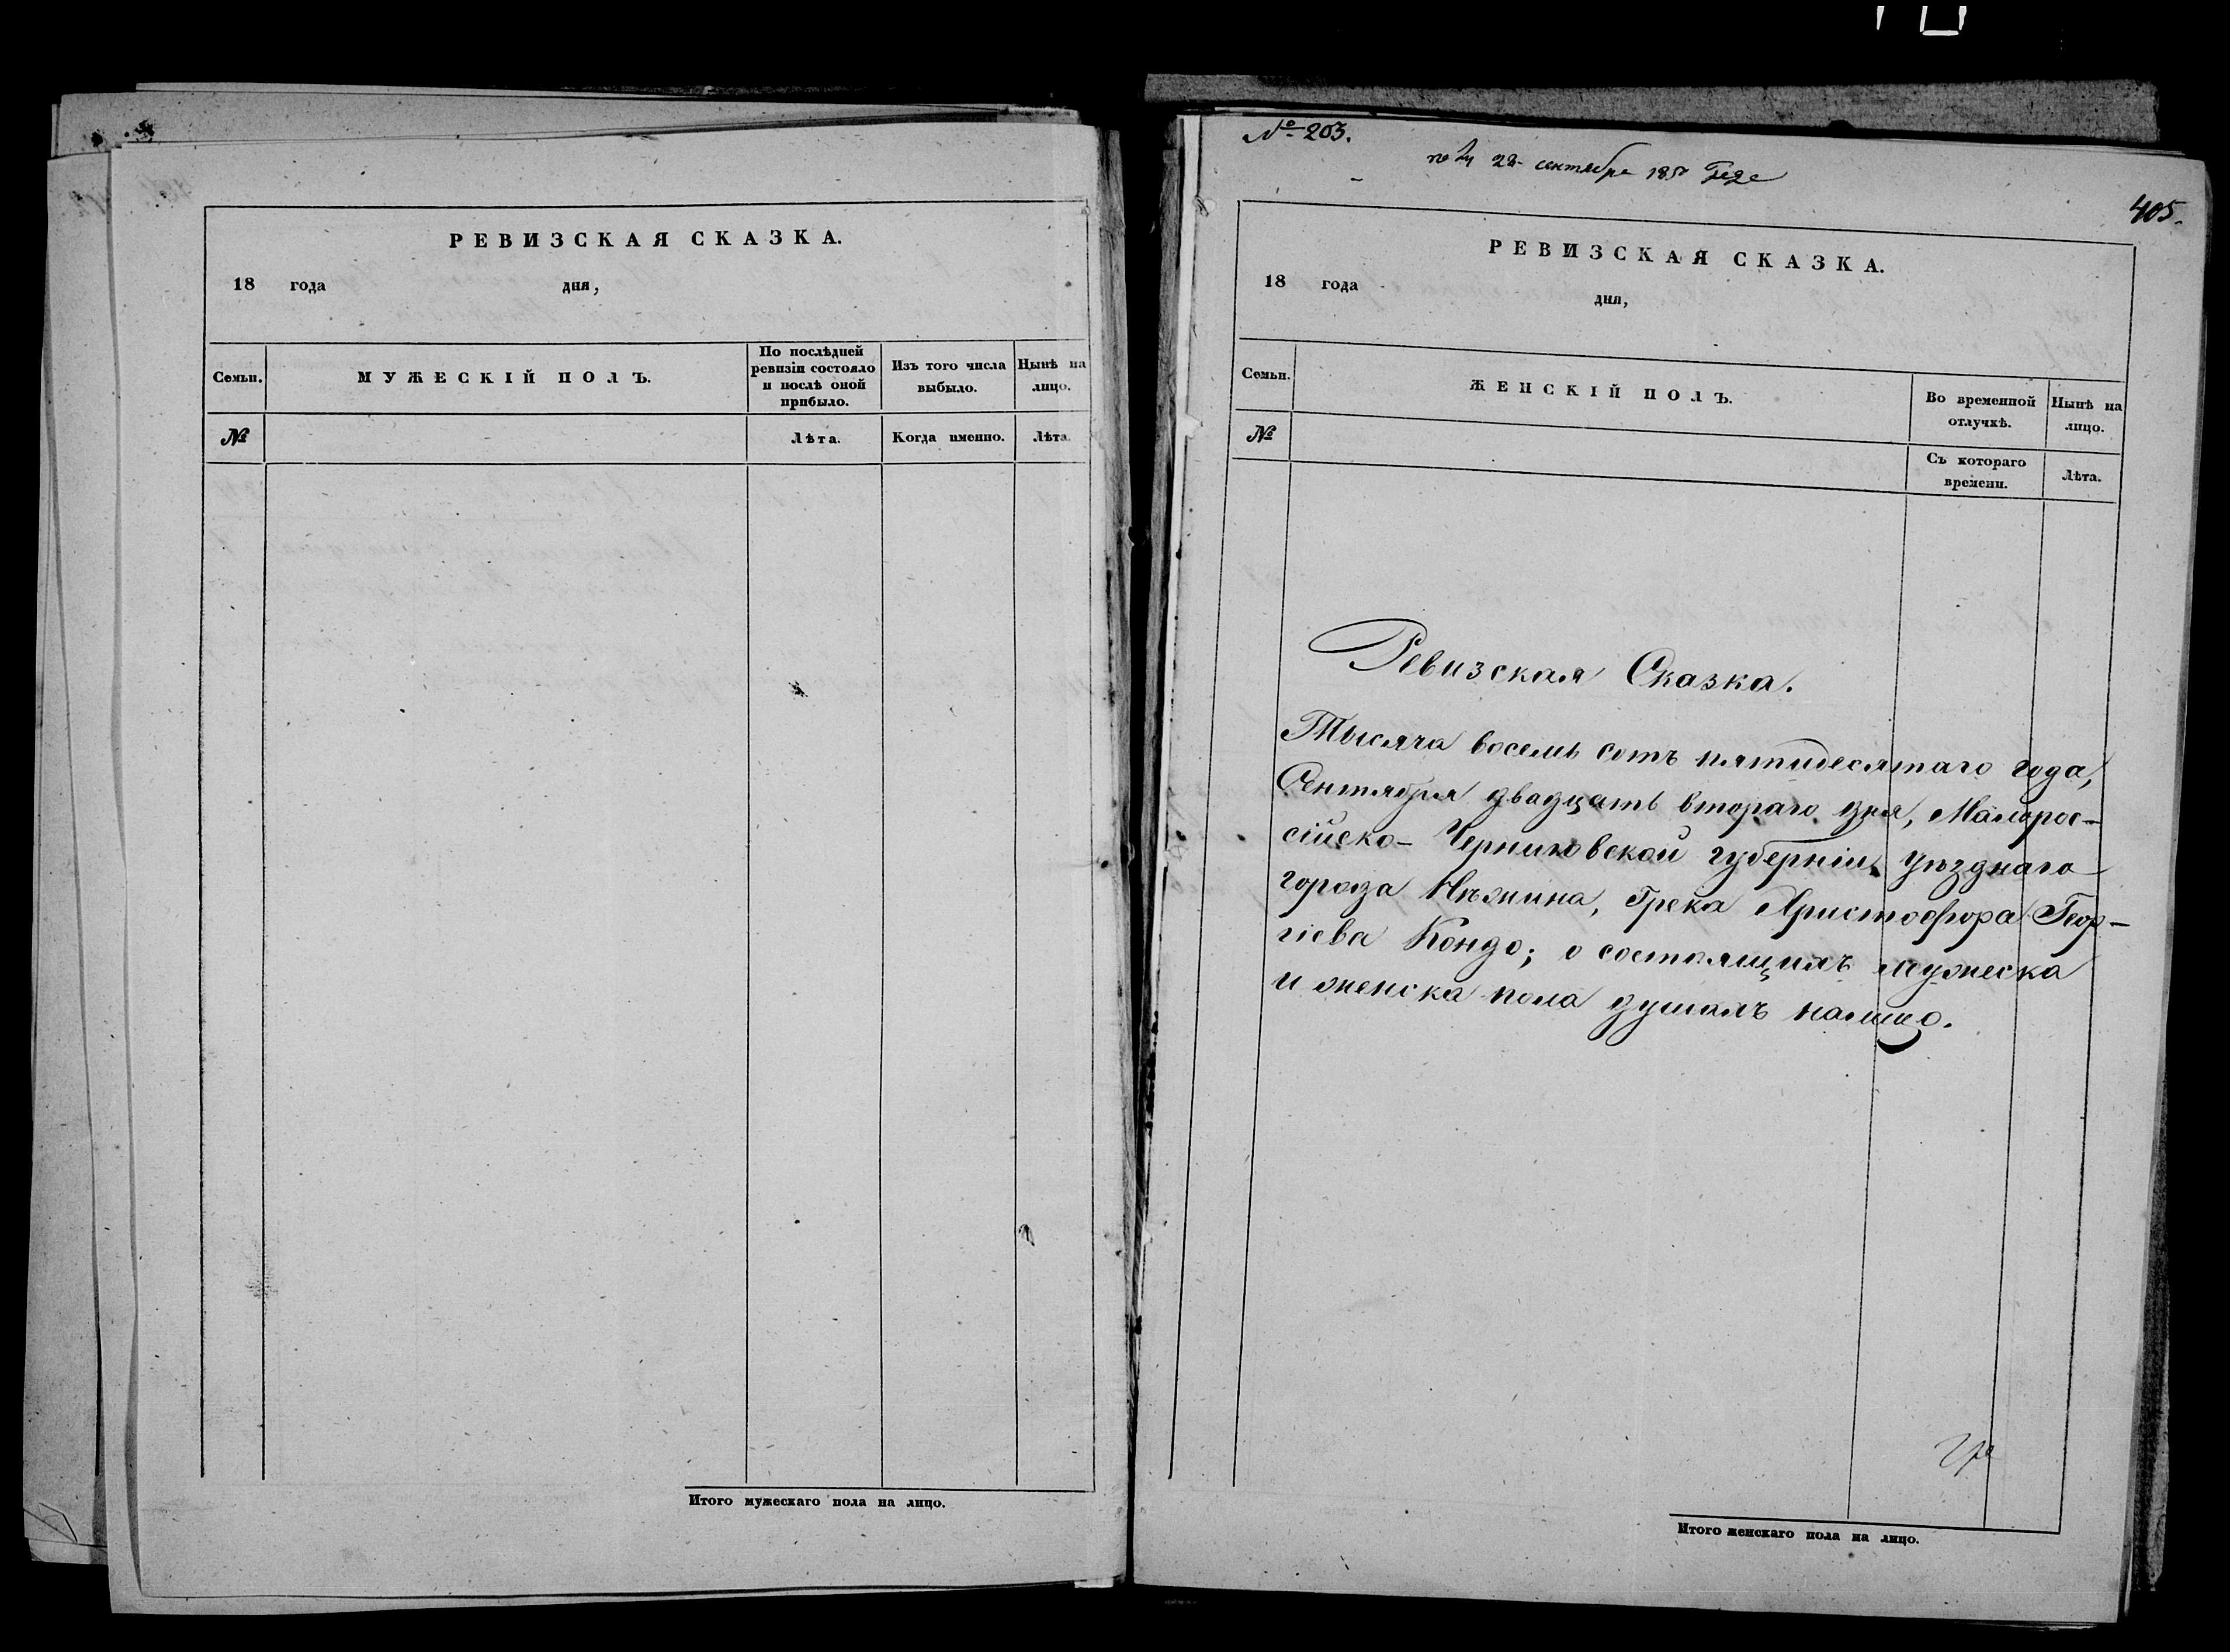 РЕВИЗСКАЯ СКАЗКА.
18 года дня,
Семьи.
МУЖЕСКІЙ ПОЛЪ.
По послѣдней
ревизіи состояло
и послѣ оной
прибыло.
Изъ того числа
выбыло.
Нынѣ на
лицо.
№
Лѣта.
Когда именно.
Лѣта
Итого мужескаго пола на лицо.
№ 203.
22 сентября 1850
405.
РЕВИЗСКАЯ СКАЗКА.
18 года дня,
Семьи.
ЖЕНСКІЙ ПОЛЪ.
Во временной
отлучкѣ.
Нынѣ на
лицо.
№
Съ котораго
времени.
Лѣта.
Ревизская Сказка.
Тысяча восемь сотъ пятидесятаго года,
Сентября двадцать втораго дня, Малорос-
сійско-Черниговской губерніи, уѣзднаго
города Нѣжина, Грека Христофора Геор-
гіева Кондо; о состоящихъ мужеска
и женска пола душахъ налицо.
Итого женскаго пола на лицо.